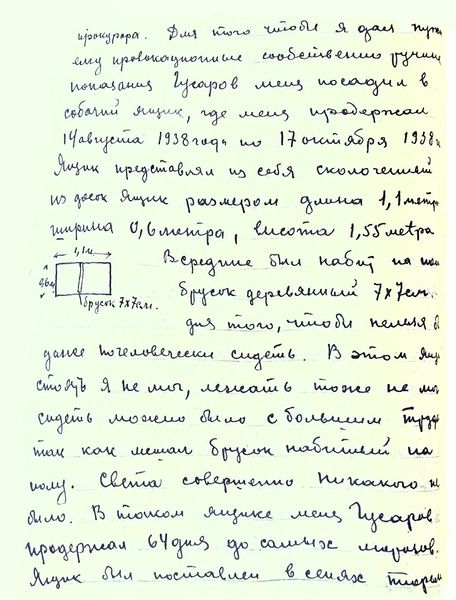 прокурора. Для того чтобы я дал нужн
ему провокационные собственно ручные
показания Гусаров меня посадил в
собачий ящик, где меня продержал
14 августа 1938 года по 17 октября 1938 г
Ящик представлял из себя сколоченный
из досок ящик размером длина 1,1 метр
ширина 0,6 метра, высота 1,55 метра
1,1 м
Всредине был набит на
0,6 м
брусок деревянный 7х7см.
брусок 7х7см.
для того, чтобы нельзя б
даже почеловечески сидеть. В этом ящ
стоять я не мог, лежать тоже не мог
сидеть можно было с большим труд
так как мешал брусок набитый на
полу. Света совершенно никакого н
было. В таком ящике меня Гусаров
продержал 64 дня до самых морозов.
Ящик был поставлен в сенях тюрьм